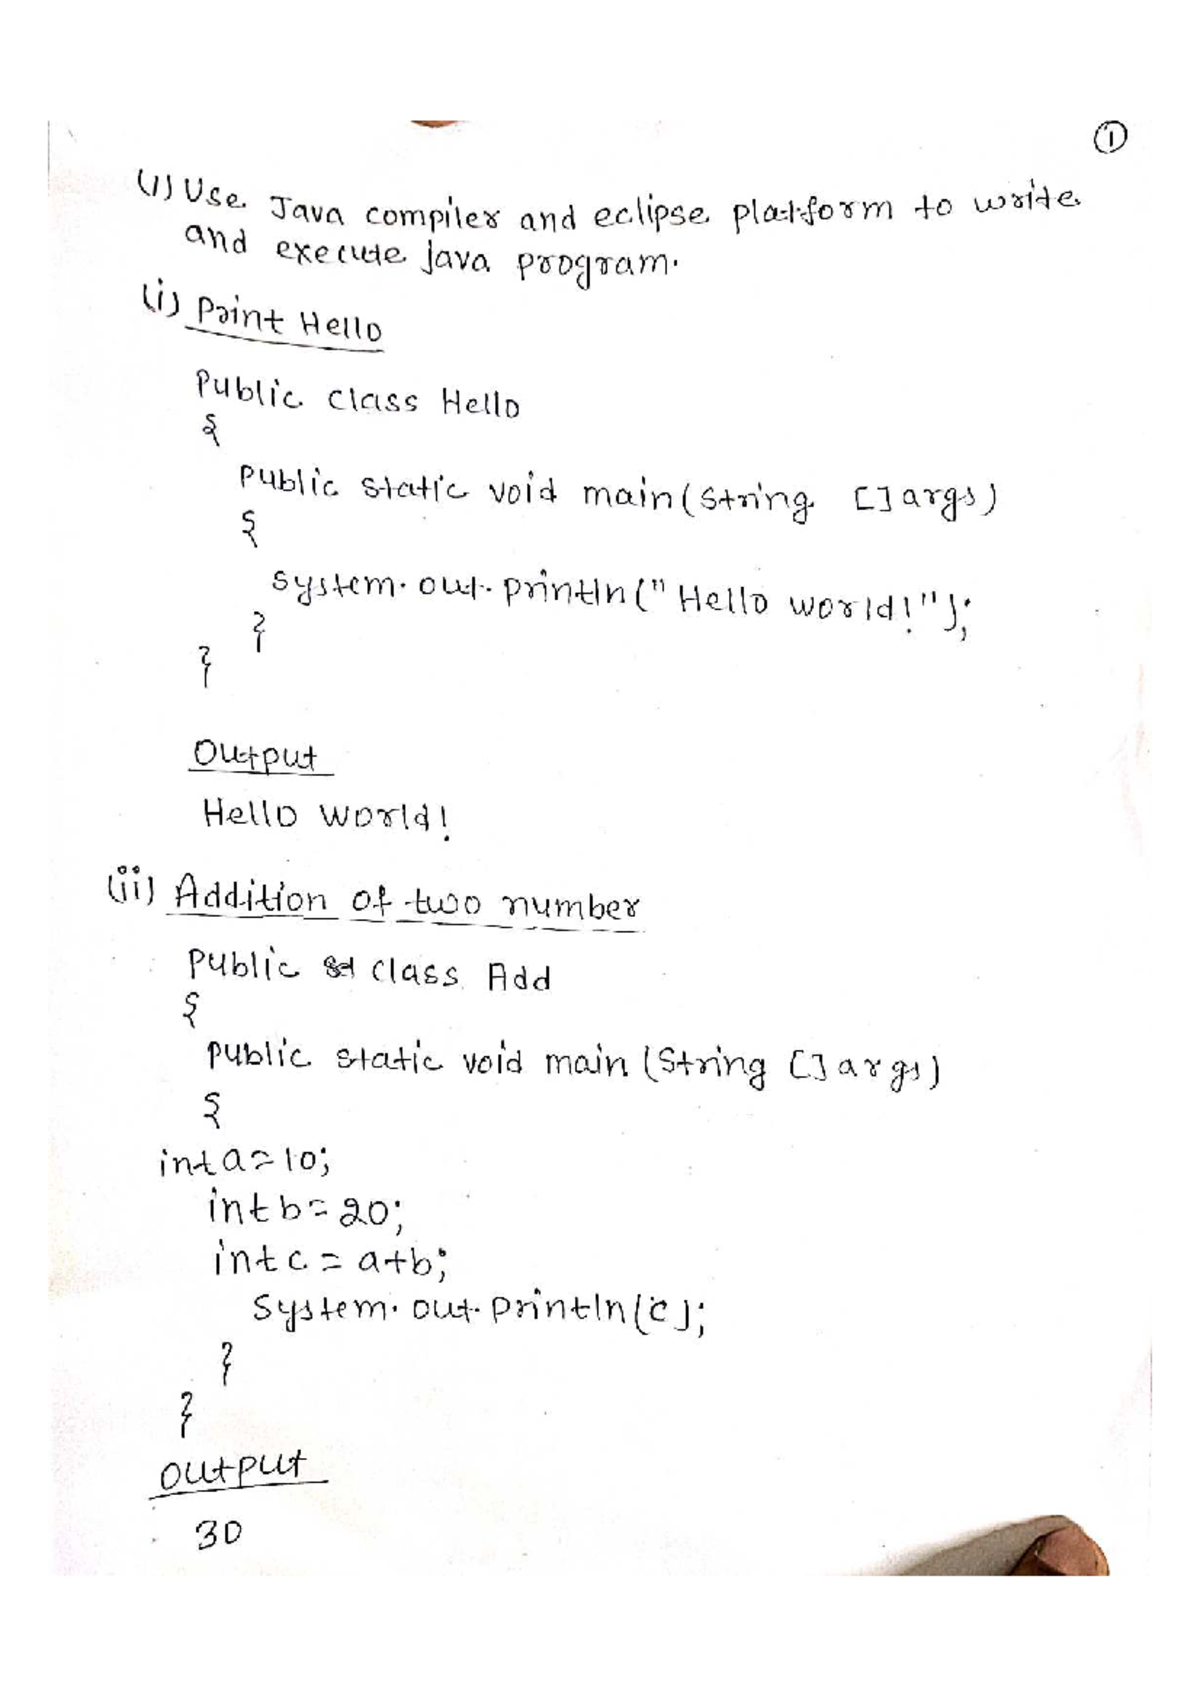 ①
(1) Use Java compiler and eclipse platform to write
and execute java program.
(i) Print Hello
Public class Hello
{
Public static void main(String []args)
{
system.out.println("Hello world!");
}
}
Output
Hello World!
(ii) Addition of two number
Public class Add
{
public static void main (String []args)
{
int a=10;
int b=20;
int c=a+b;
System.out.println(c);
}
}
output
30